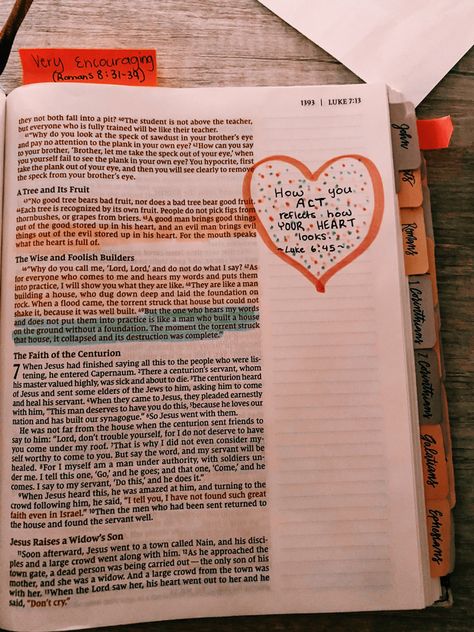 Very Encouraging
(Romans 8:31-39)
1393 | LUKE 7:13
they not both fall into a pit? ⁴⁰The student is not above the teacher,
but everyone who is fully trained will be like their teacher.
⁴¹"Why do you look at the speck of sawdust in your brother's eye
and pay no attention to the plank in your own eye? ⁴²How can you say
to your brother, 'Brother, let me take the speck out of your eye,' when
you yourself fail to see the plank in your own eye? You hypocrite, first
take the plank out of your eye, and then you will see clearly to remove
the speck from your brother's eye.
A Tree and Its Fruit
⁴³"No good tree bears bad fruit, nor does a bad tree bear good fruit.
⁴⁴Each tree is recognized by its own fruit. People do not pick figs from
thornbushes, or grapes from briers. ⁴⁵A good man brings good things
out of the good stored up in his heart, and an evil man brings evil
things out of the evil stored up in his heart. For the mouth speaks
what the heart is full of.
The Wise and Foolish Builders
⁴⁶"Why do you call me, 'Lord, Lord,' and do not do what I say? ⁴⁷As
for everyone who comes to me and hears my words and puts them
into practice, I will show you what they are like. ⁴⁸They are like a man
building a house, who dug down deep and laid the foundation on
rock. When a flood came, the torrent struck that house but could not
shake it, because it was well built. ⁴⁹But the one who hears my words
and does not put them into practice is like a man who built a house
on the ground without a foundation. The moment the torrent struck
that house, it collapsed and its destruction was complete."
The Faith of the Centurion
7 When Jesus had finished saying all this to the people who were lis-
tening, he entered Capernaum. ²There a centurion's servant, whom
his master valued highly, was sick and about to die. ³The centurion heard
of Jesus and sent some elders of the Jews to him, asking him to come
and heal his servant. ⁴When they came to Jesus, they pleaded earnestly
with him, "This man deserves to have you do this, ⁵because he loves our
nation and has built our synagogue." ⁶So Jesus went with them.
He was not far from the house when the centurion sent friends to
say to him: "Lord, don't trouble yourself, for I do not deserve to have
you come under my roof. ⁷That is why I did not even consider my-
self worthy to come to you. But say the word, and my servant will be
healed. ⁸For I myself am a man under authority, with soldiers un-
der me. I tell this one, 'Go,' and he goes; and that one, 'Come,' and he
comes. I say to my servant, 'Do this,' and he does it."
⁹When Jesus heard this, he was amazed at him, and turning to the
crowd following him, he said, "I tell you, I have not found such great
faith even in Israel." ¹⁰Then the men who had been sent returned to
the house and found the servant well.
Jesus Raises a Widow's Son
¹¹Soon afterward, Jesus went to a town called Nain, and his disci-
ples and a large crowd went along with him. ¹²As he approached the
town gate, a dead person was being carried out — the only son of his
mother, and she was a widow. And a large crowd from the town was
with her. ¹³When the Lord saw her, his heart went out to her and he
said, "Don't cry."
How you
ACT
reflects how
YOUR HEART
looks!
~Luke 6:45~
John
Romans
1 Corinthians
2 Corinthians
Galatians
Ephesians